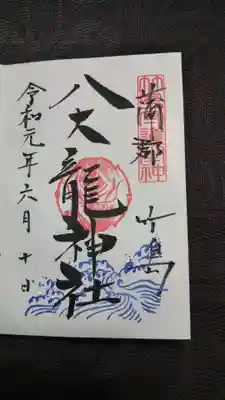 蒲郡
竹島
八大龍神社
令和元年六月十日